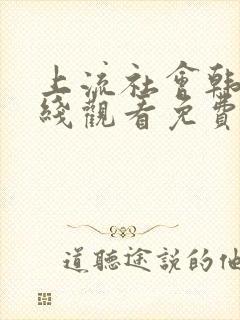 上流社會韩
綫觀看免費
道聽途説的他